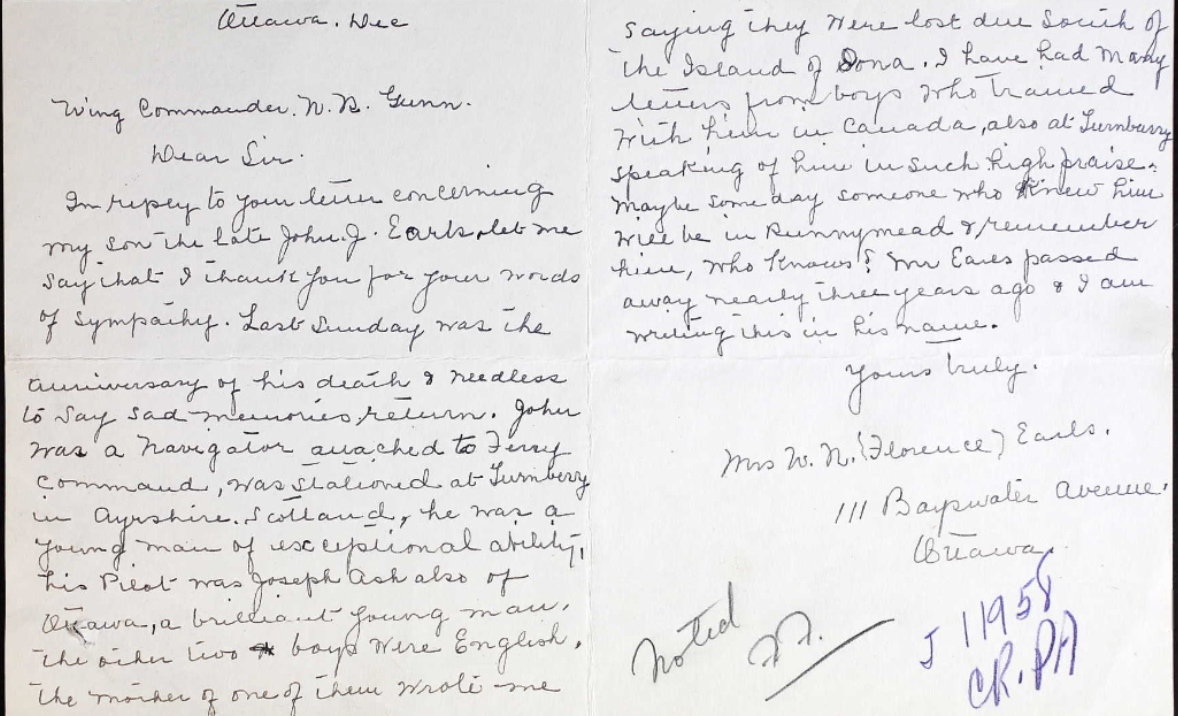 Ottawa. Dec
Wing Commander. W. R. Gunn.
Dear Sir.
In repey to your letter concerning
my son the late John. J. Earls, let me
say that I thank you for your words
of sympathy. Last Sunday was the
anniversary of his death & needless
to say sad memories, return. John
was a Navigator attached to Ferry
Command, was stationed at Turnberry
in Ayrshire. Scotland, he was a
young man of exceptional ability,
his Pilot was Joseph Ash also of
Ottawa, a brilliant young man.
the other two boys were English,
the mother of one of them wrote me
saying they were lost due South of
the Island of Iona. I have had many
letters from boys who trained
with him in Canada, also at Turnberry
speaking of him in such high praise.
maybe some day someone who knew him
will be in Runnymead & remember
him, who knows? Mr Earls passed
away nearly three years ago & I am
writing this in his name.
Yours truly.
Mrs W. N. (Florence) Earls.
111 Bayswater Avenue.
Ottawa.
Noted
J 11958
CR. PA